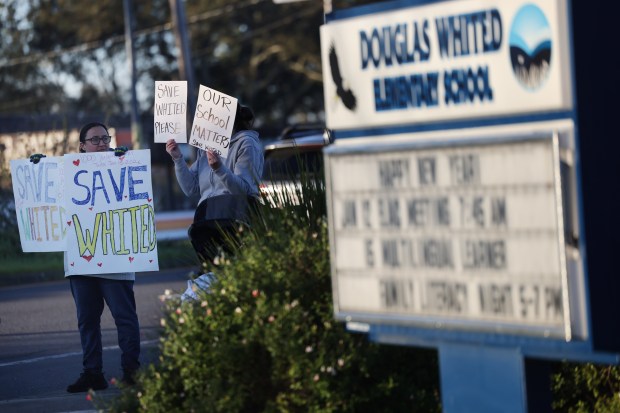 SAVE
WHITED
SAVE
WHITED
SAVE
WHITED
PLEASE
OUR
School
MATTERS
SAVE WHITED
DOUGLAS WHITED
ELEMENTARY SCHOOL
HAPPY NEW YEAR!
JAN 12 ELAC MEETING 7:45 AM
15 MULTILINGUAL LEARNER
FAMILY LITERACY NIGHT 5-7 PM